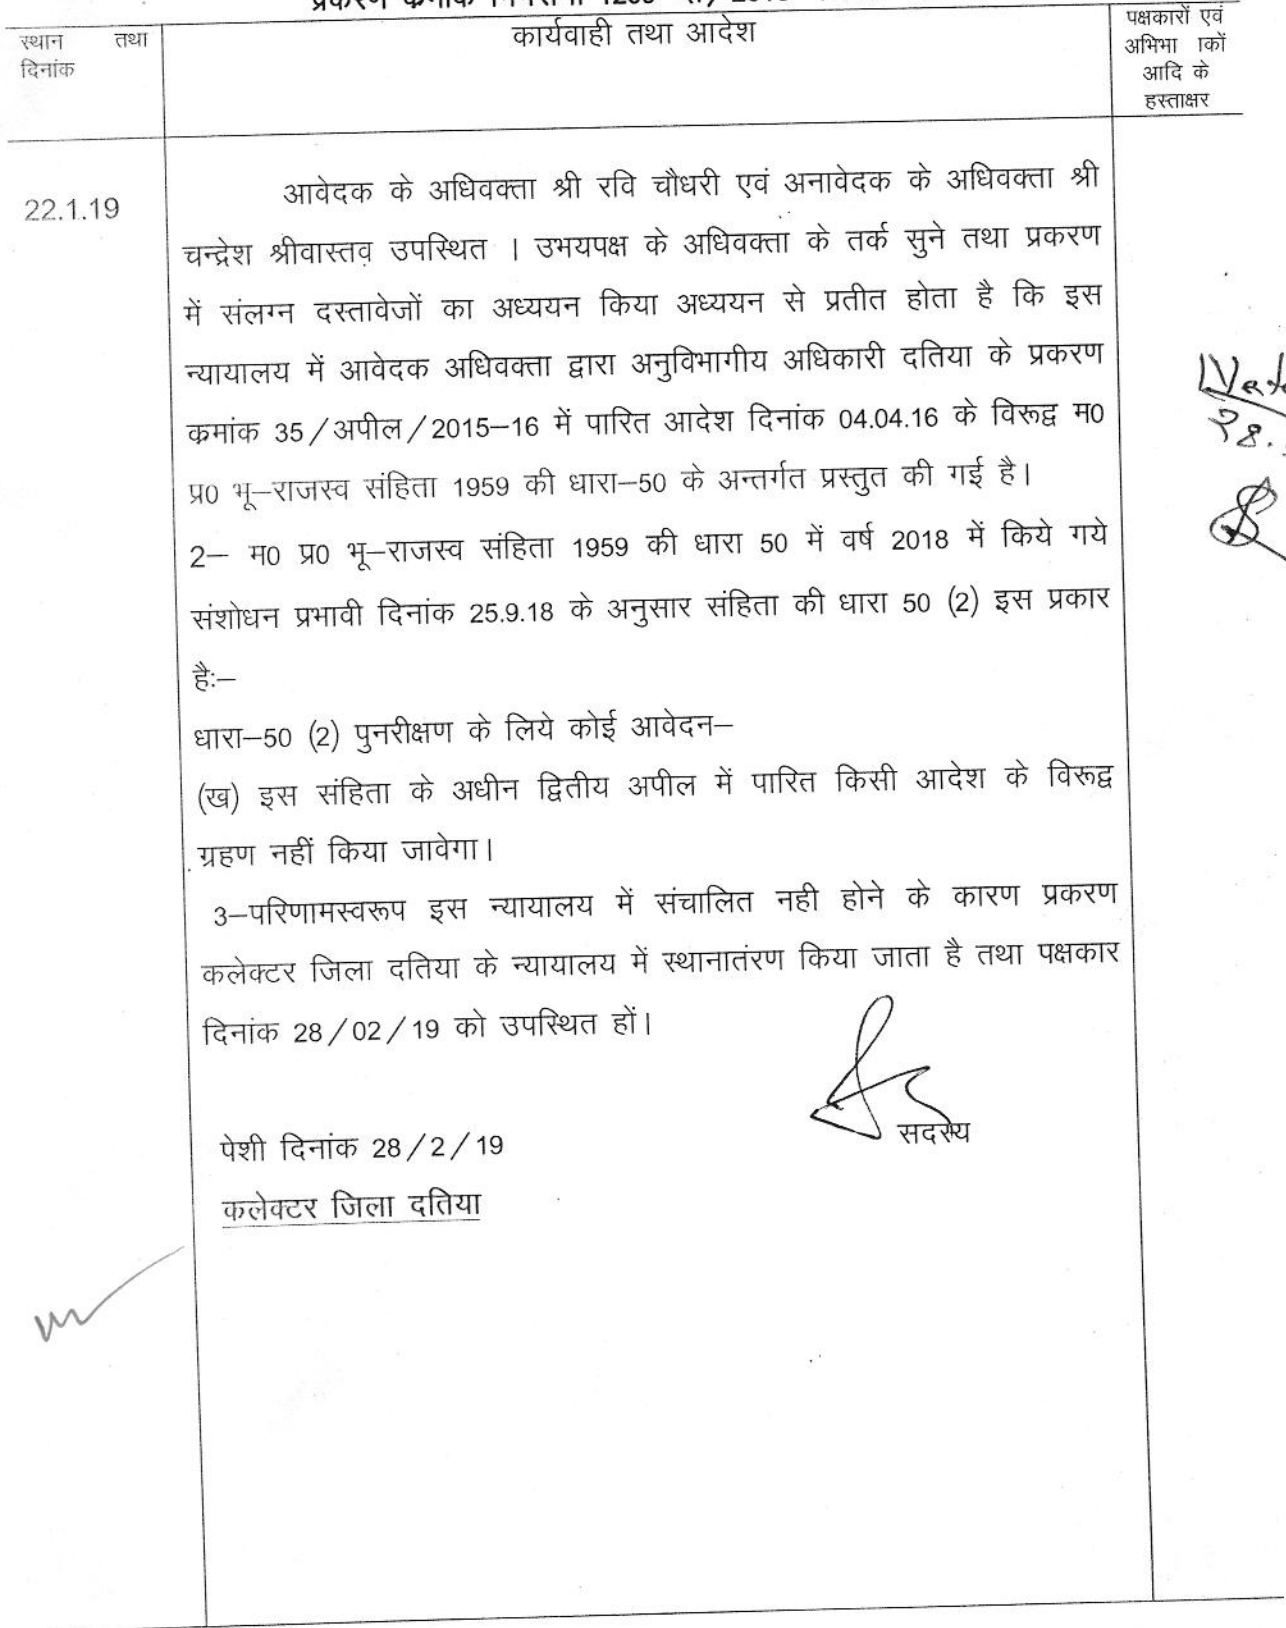 स्थान तथा
दिनांक
कार्यवाही तथा आदेश
पक्षकारों एवं
अभिभा ाकों
आदि के
हस्ताक्षर
22.1.19
आवेदक के अधिवक्ता श्री रवि चौधरी एवं अनावेदक के अधिवक्ता श्री
चन्द्रेश श्रीवास्तव उपस्थित । उभयपक्ष के अधिवक्ता के तर्क सुने तथा प्रकरण
में संलग्न दस्तावेजों का अध्ययन किया अध्ययन से प्रतीत होता है कि इस
न्यायालय में आवेदक अधिवक्ता द्वारा अनुविभागीय अधिकारी दतिया के प्रकरण
कमांक 35/अपील/2015–16 में पारित आदेश दिनांक 04.04.16 के विरूद्व म0
प्र0 भू–राजस्व संहिता 1959 की धारा–50 के अन्तर्गत प्रस्तुत की गई है।
2– म0 प्र0 भू–राजस्व संहिता 1959 की धारा 50 में वर्ष 2018 में किये गये
संशोधन प्रभावी दिनांक 25.9.18 के अनुसार संहिता की धारा 50 (2) इस प्रकार
है:–
धारा–50 (2) पुनरीक्षण के लिये कोई आवेदन–
(ख) इस संहिता के अधीन द्वितीय अपील में पारित किसी आदेश के विरूद्व
ग्रहण नहीं किया जावेगा।
3–परिणामस्वरूप इस न्यायालय में संचालित नही होने के कारण प्रकरण
कलेक्टर जिला दतिया के न्यायालय में स्थानातंरण किया जाता है तथा पक्षकार
दिनांक 28/02/19 को उपस्थित हों।
सदस्य
पेशी दिनांक 28/2/19
कलेक्टर जिला दतिया